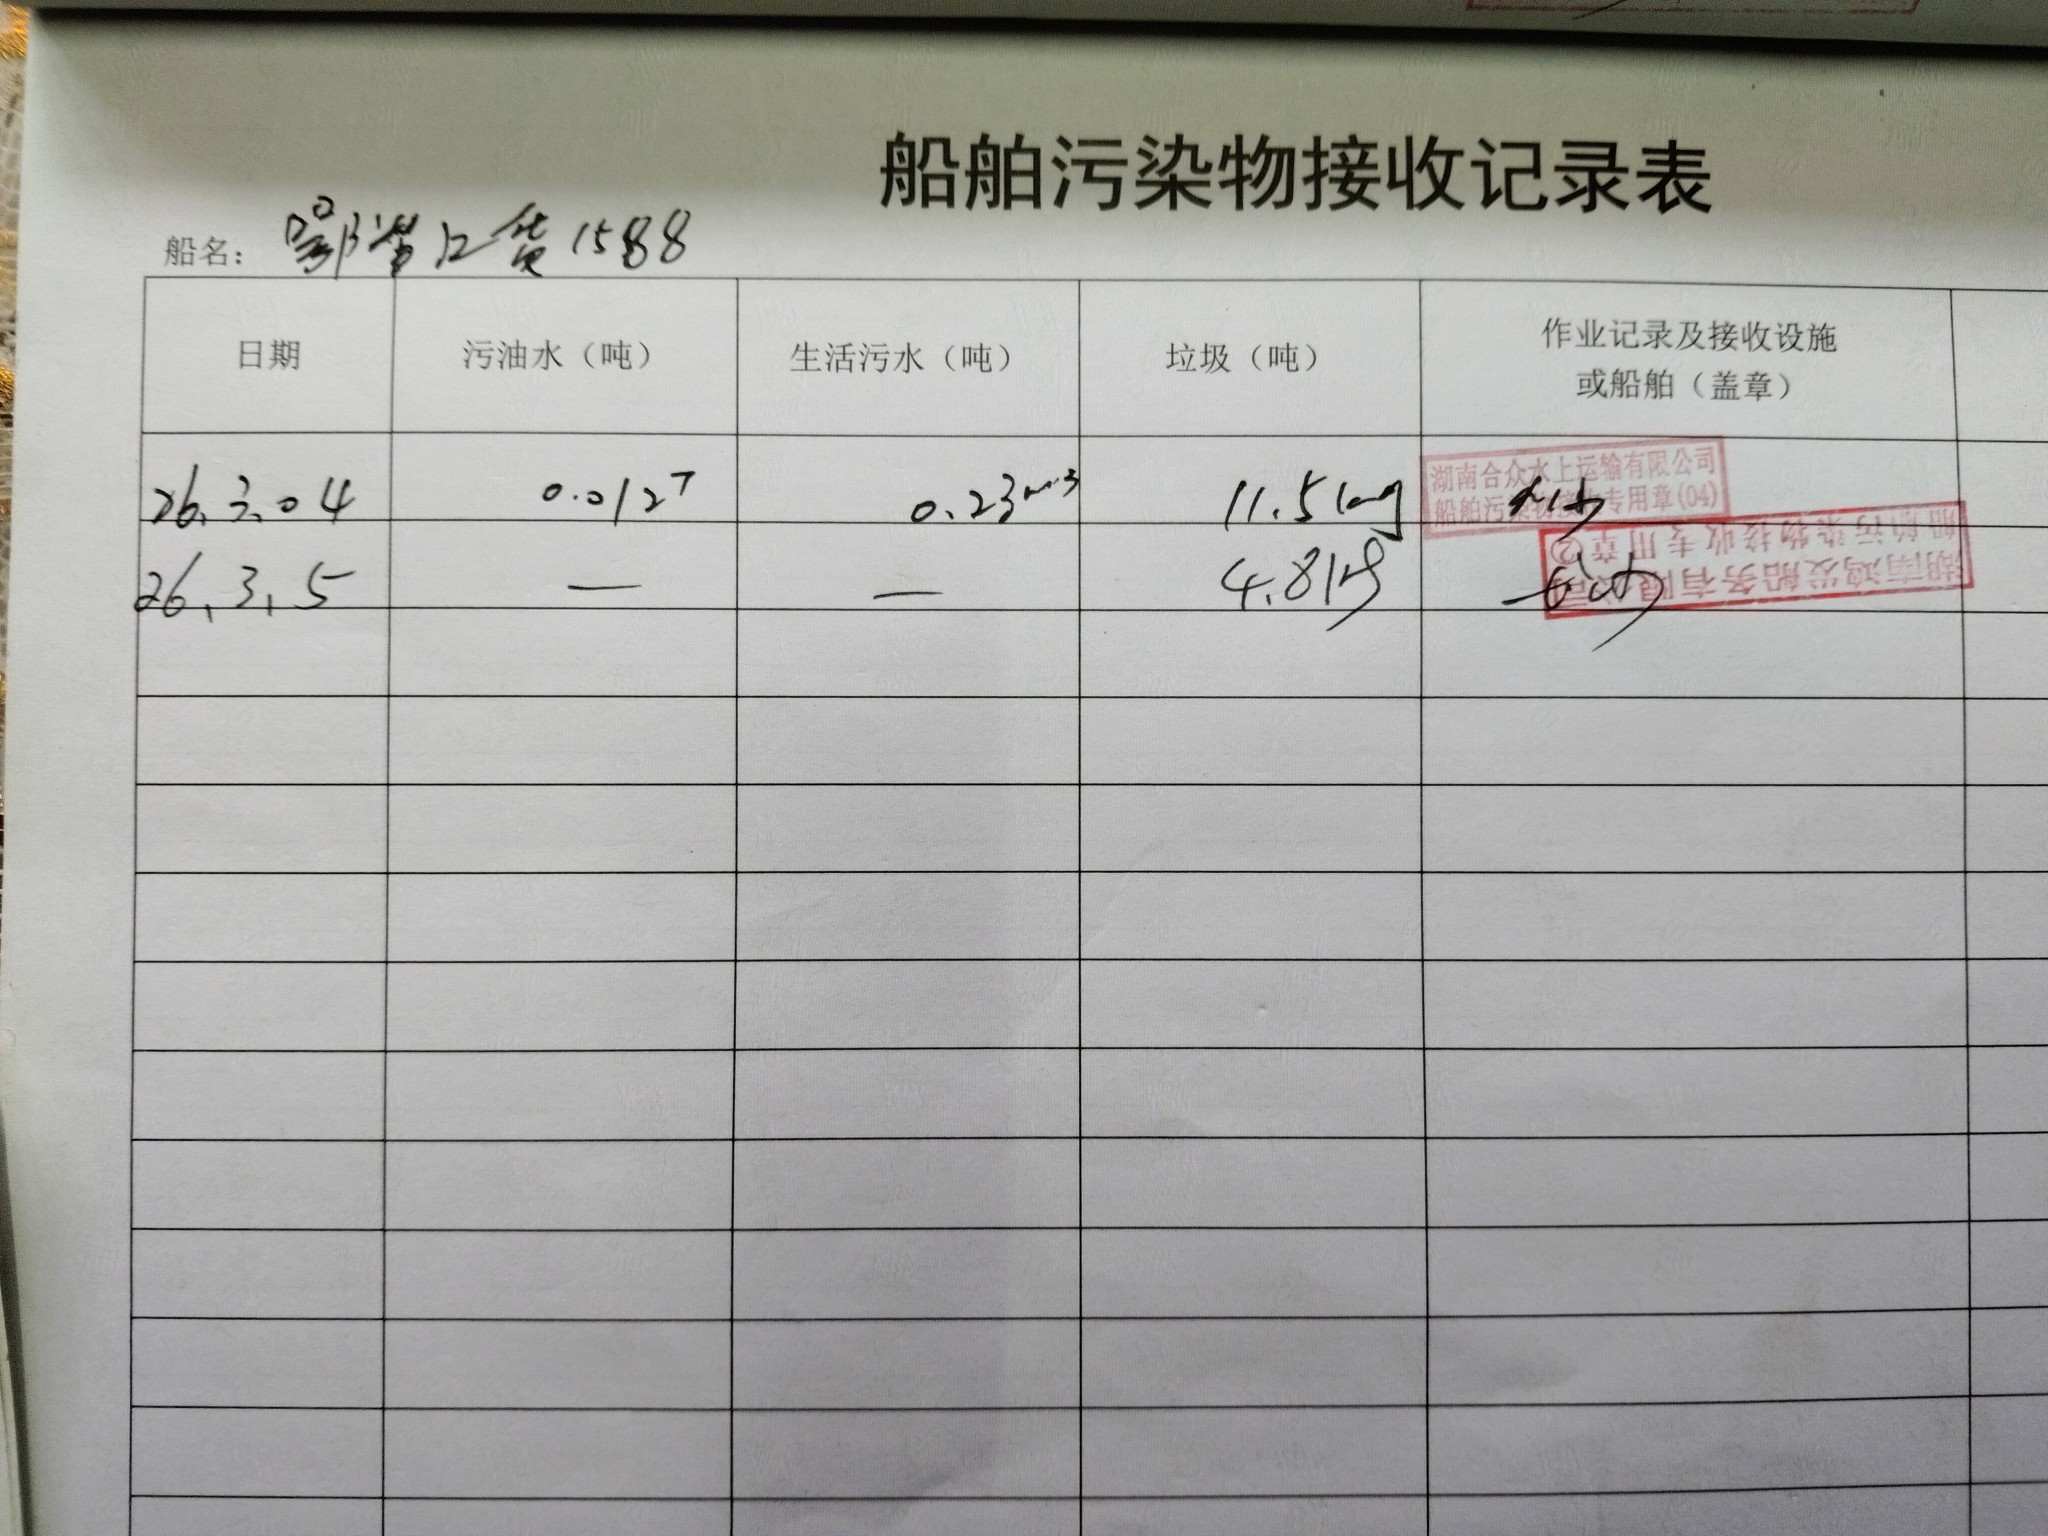 船舶污染物接收记录表
船名: 鄂 江货1588
日期 污油水（吨） 生活污水（吨） 垃圾（吨） 作业记录及接收设施
或船舶（盖章）
26.3.04 0.012T 0.23m3 11.5kg
湖南合众水上运输有限公司
船舶污染物接收专用章(04)
26.3.5 — — 4.8kg
湖南鸿发船务有限公司
船舶污染物接收专用章②